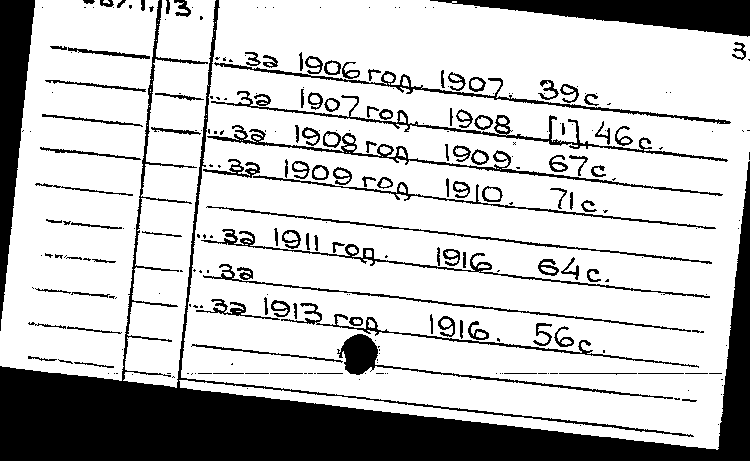 1.13.
3.
... за 1906 год. 1907. 39 с.
... за 1907 год. 1908. [1], 46 с.
... за 1908 год 1909. 67 с.
... за 1909 год 1910. 71 с.
... за 1911 год. 1916. 64 с.
... за
... за 1913 год. 1916. 56 с.